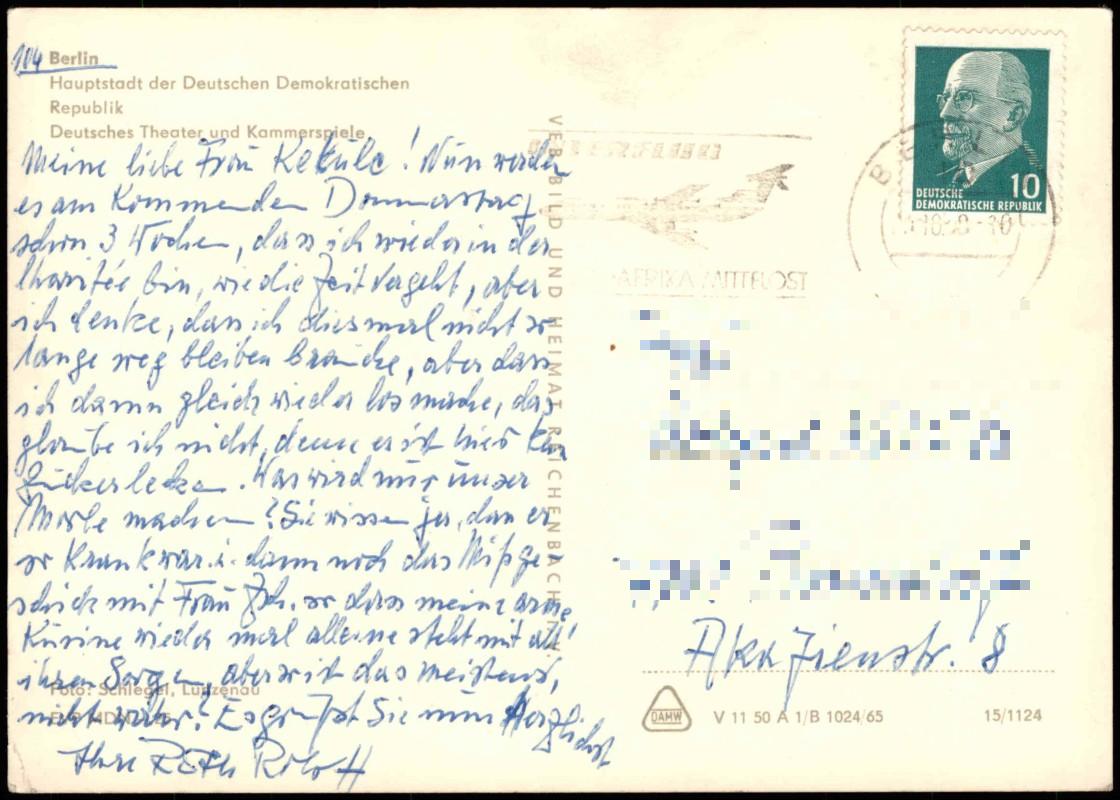 104 Berlin
Hauptstadt der Deutschen Demokratischen
Republik
Deutsches Theater und Kammerspiele
Meine liebe Frau Kekule! Nun werden
es am Kommenden Donnerstag
schon 3 Wochen, dass ich wieder in der
Charitée bin, wie die Zeit vergeht, aber
ich denke, dass ich diesmal nicht so
lange weg bleiben brauche, aber dass
ich dann gleich wieder losmache, das
glaube ich nicht, denn es ist hier kein
Zuckerlecken. Was wird nur unser
machen? Sie wissen ja, dass er
so Krank war u. dann noch das Mißge-
schick mit Frau Zsch. so dass meine arme
Kusine wieder mal alleine steht mit all'
ihren Sorgen, aber so ist das meistens,
nicht wahr? Es grüßt Sie nun Herzlichst
Ihre Ruth Roloff
Foto: Schlegel, Lunzenau
VEB BILD UND HEIMAT REICHENBACH
AFRIKA / MITTELOST
DEUTSCHE
DEMOKRATISCHE REPUBLIK
10
Akazienstr. 8
DAMW
V 11 50 A 1/B 1024/65
15/1124